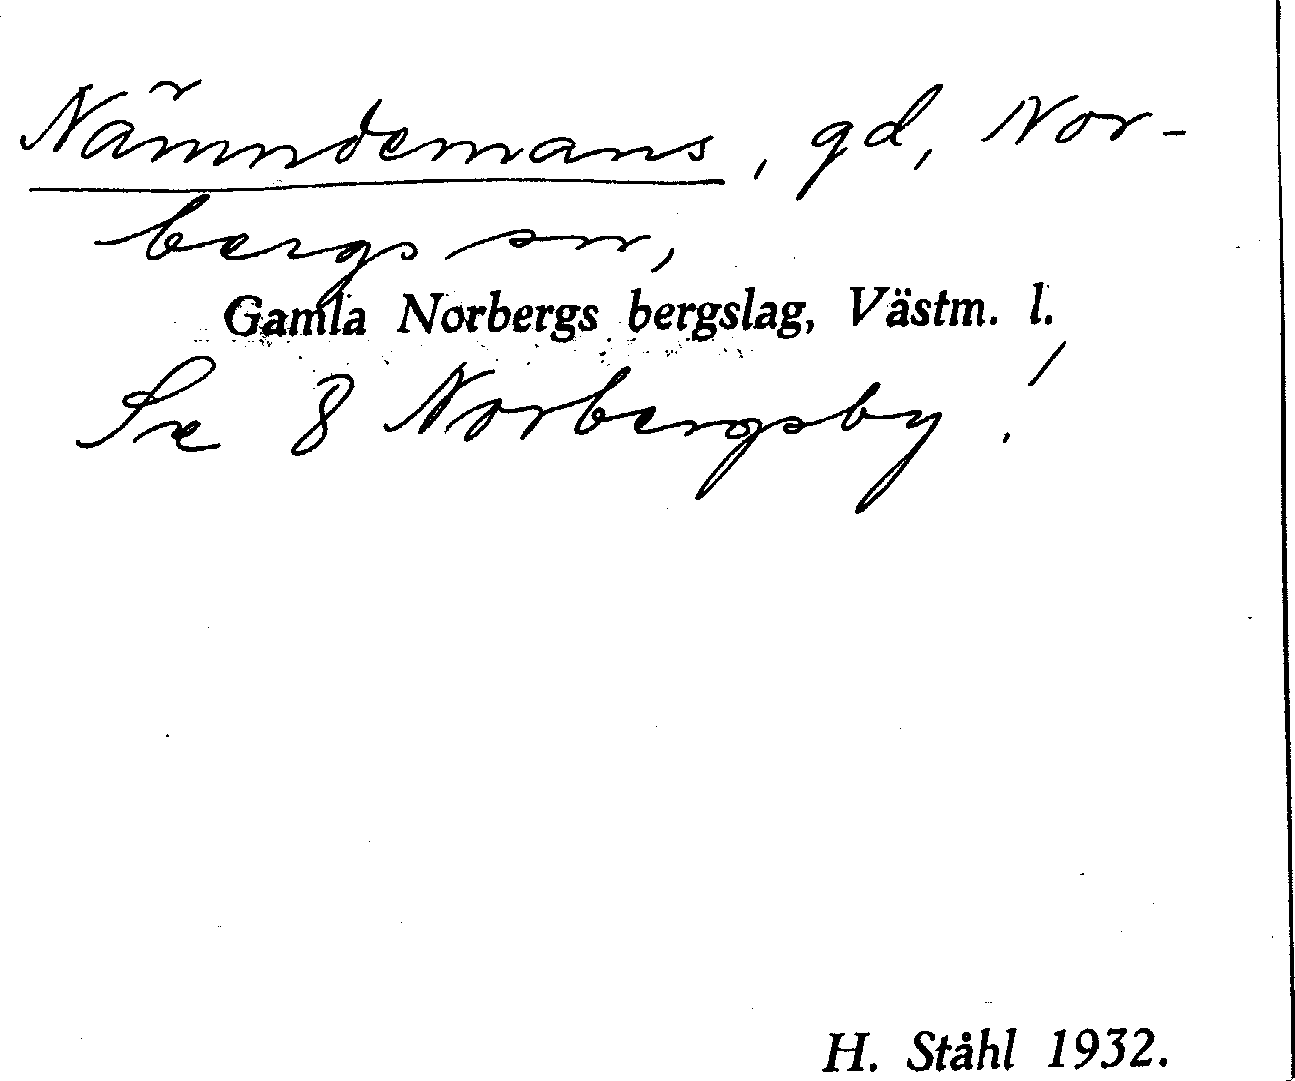 Nämndemans, gd, Nor-
bergs sn,
Gamla Norbergs bergslag, Västm. l.
Se 8 Norbergsby!
H. Ståhl 1932.